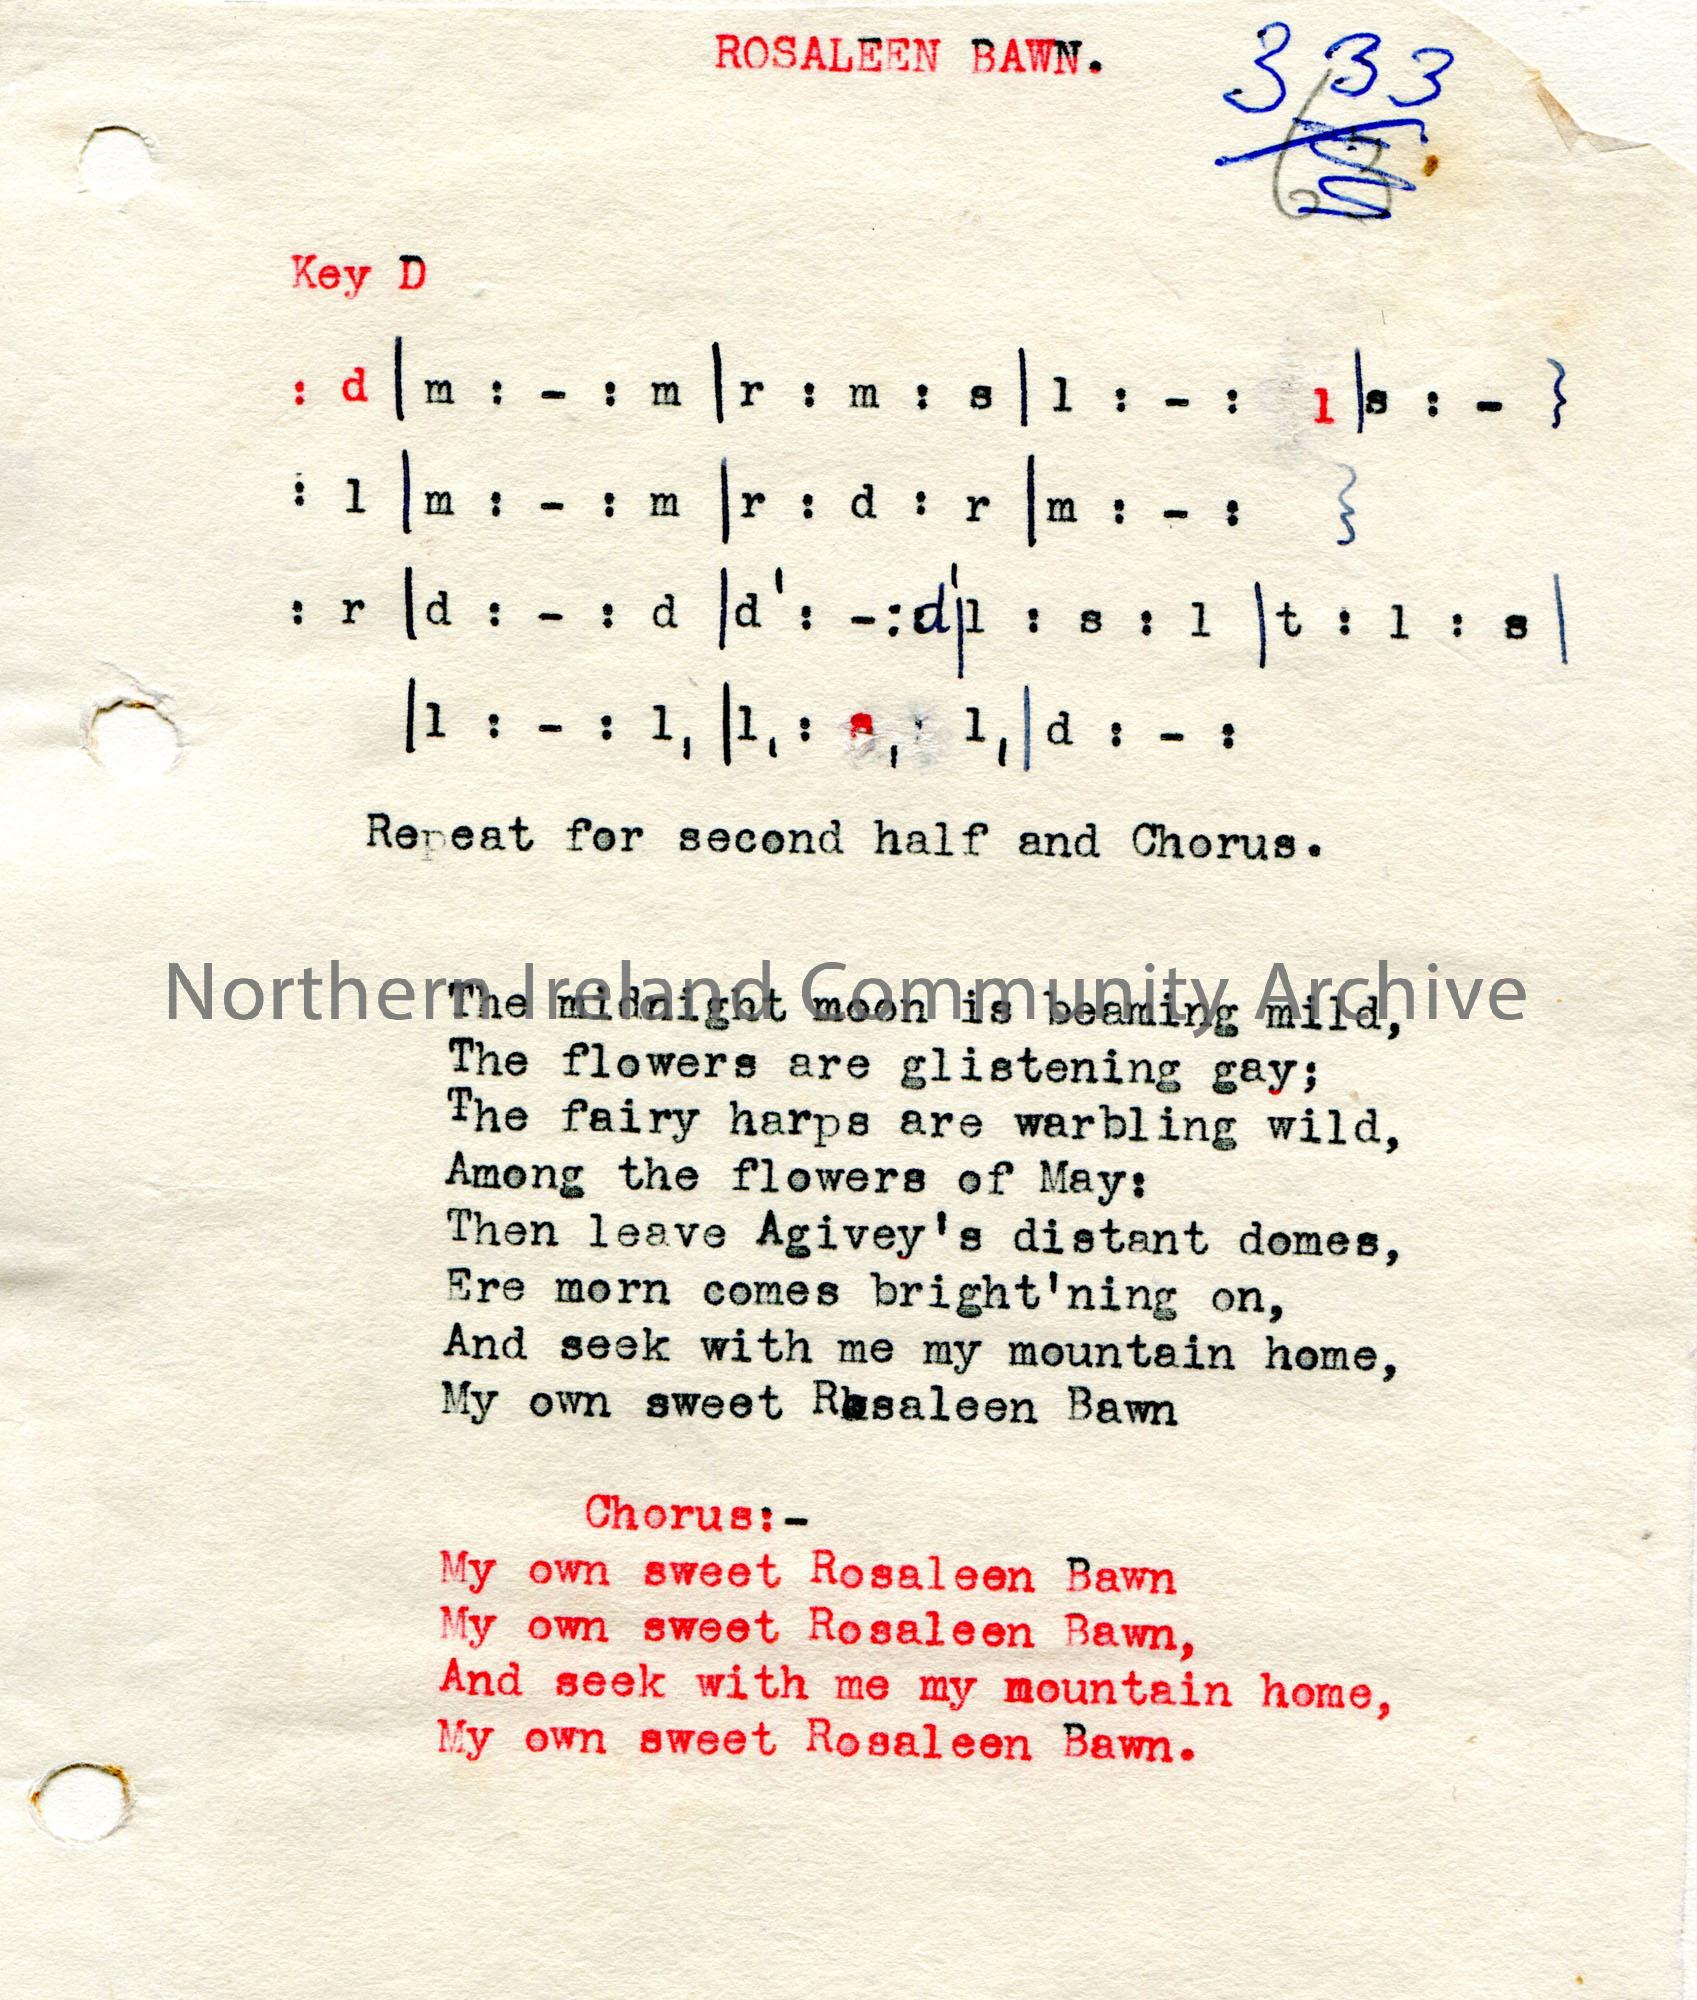 ROSALEEN BAWN.
333
Key D
: d | m : - : m | r : m : s | l : - : l | s : - }
: l | m : - : m | r : d : r | m : - : }
: r | d : - : d | d' : - : d' | l : s : l | t : l : s |
| l : - : l, | l, : s, : l, | d : - :
Repeat for second half and Chorus.
Northern Ireland Community Archive
The midnight moon is beaming mild,
The flowers are glistening gay;
The fairy harps are warbling wild,
Among the flowers of May:
Then leave Agivey's distant domes,
Ere morn comes bright'ning on,
And seek with me my mountain home,
My own sweet Rosaleen Bawn
Chorus:-
My own sweet Rosaleen Bawn
My own sweet Rosaleen Bawn,
And seek with me my mountain home,
My own sweet Rosaleen Bawn.